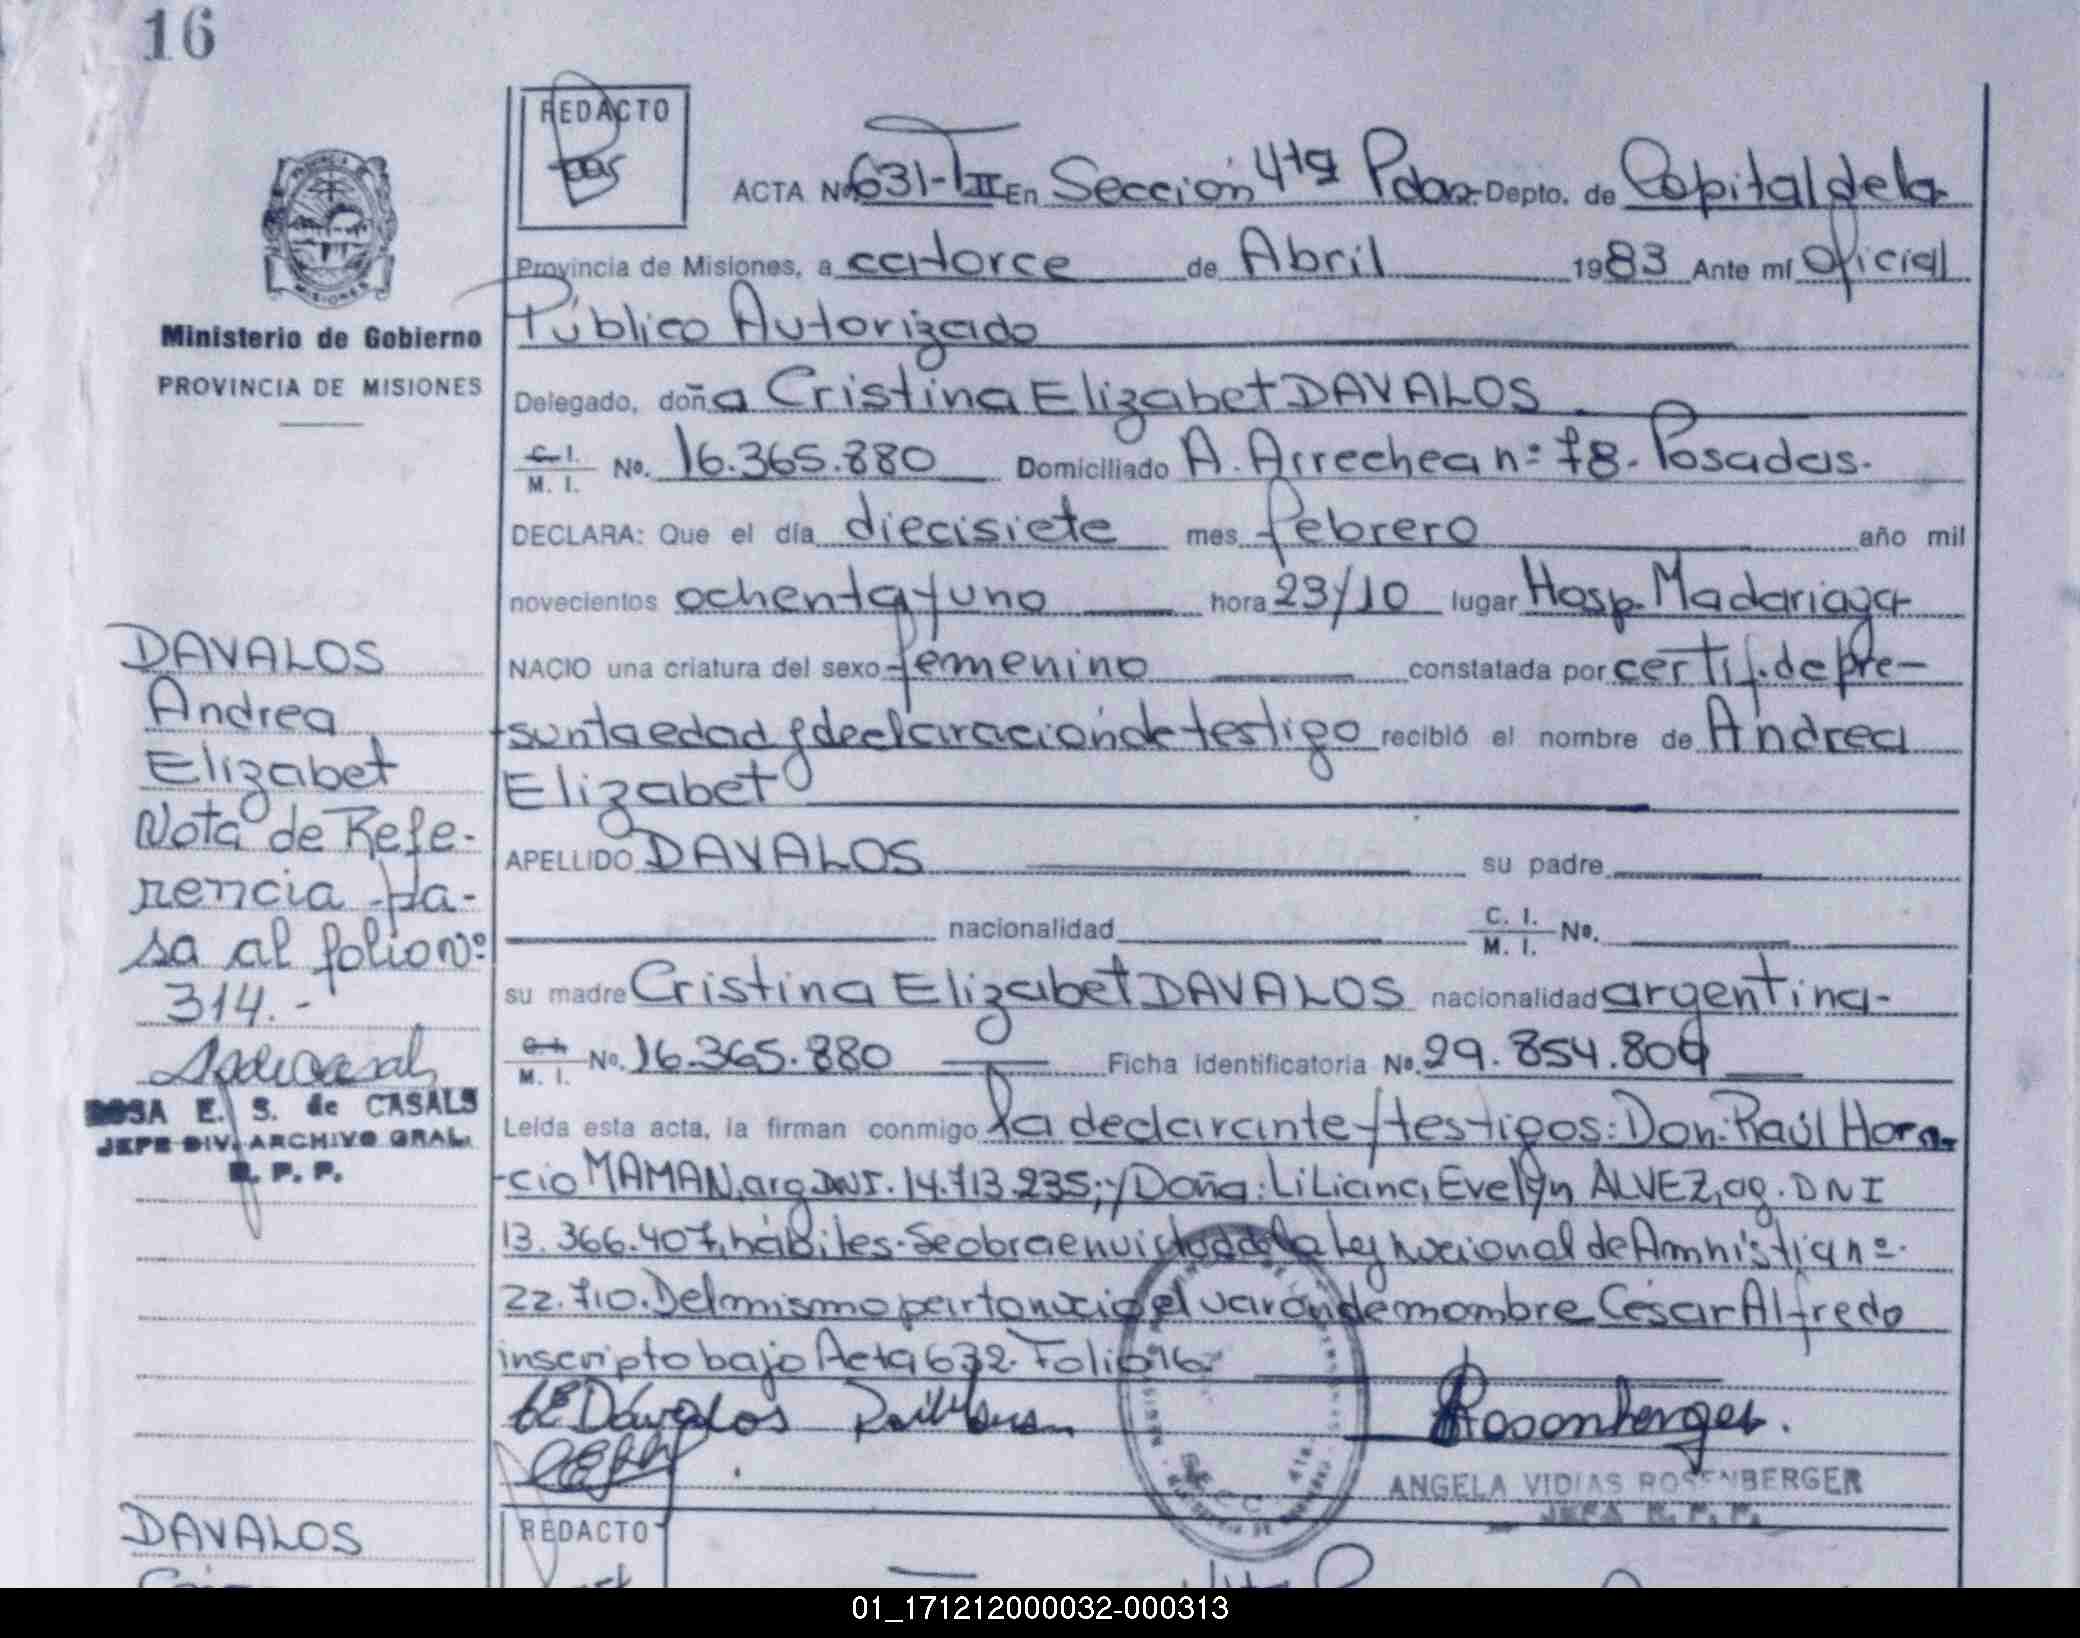 16
REDACTO
ACTA Nº 631-TII En Sección 4ta Pdas- Depto. de Capital de la
Provincia de Misiones, a catorce de Abril 1983 Ante mí Oficial
Público Autorizado
Ministerio de Gobierno
PROVINCIA DE MISIONES
Delegado, doña Cristina Elizabet DAVALOS
C. I. / M. I. No. 16.365.880 Domiciliado A. Arrechea nº 78. Posadas.
DECLARA: Que el día diecisiete mes febrero año mil
novecientos ochenta y uno hora 23/10 lugar Hosp. Madariaga
NACIO una criatura del sexo femenino constatada por certif. de pre-
sunta edad y declaración de testigo recibió el nombre de Andrea
Elizabet
APELLIDO DAVALOS su padre
nacionalidad C. I. / M. I. No.
su madre Cristina Elizabet DAVALOS nacionalidad argentina-
C. I. / M. I. No. 16.365.880 Ficha Identificatoria No. 29.854.809
Leída esta acta, la firman conmigo la declarante y testigos: Don: Raúl Hora-
-cio MAMAN, arg. DNI. 14.713.235; y Doña: Liliana Evelyn ALVEZ, ag. DNI
13.366.407, hábiles. Se obra en virtud de la Ley Nacional de Amnistia nº.
22.710. Del mismo parto nació el varón de nombre César Alfredo
inscripto bajo Acta 632. Folio 16.
DAVALOS
Andrea
Elizabet
Nota de Refe-
rencia pa-
sa al folio Nº
314.-
ROSA E. S. de CASALS
JEFE DIV. ARCHIVO GRAL.
R. P. P.
C E Dávalos
Rosenberger.
ANGELA VIDIAS ROSENBERGER
JEFA R. P. P.
DAVALOS
REDACTO
01_171212000032-000313